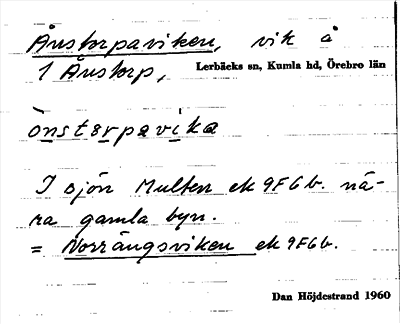 Ånstorpaviken, vik å
1 Ånstorp, Lerbäcks sn, Kumla hd, Örebro län
ònsterpavíka
I sjön Multen ek 9F6b. nä-
ra gamla byn.
= Norrängsviken ek 9F6b.
Dan Höjdestrand 1960